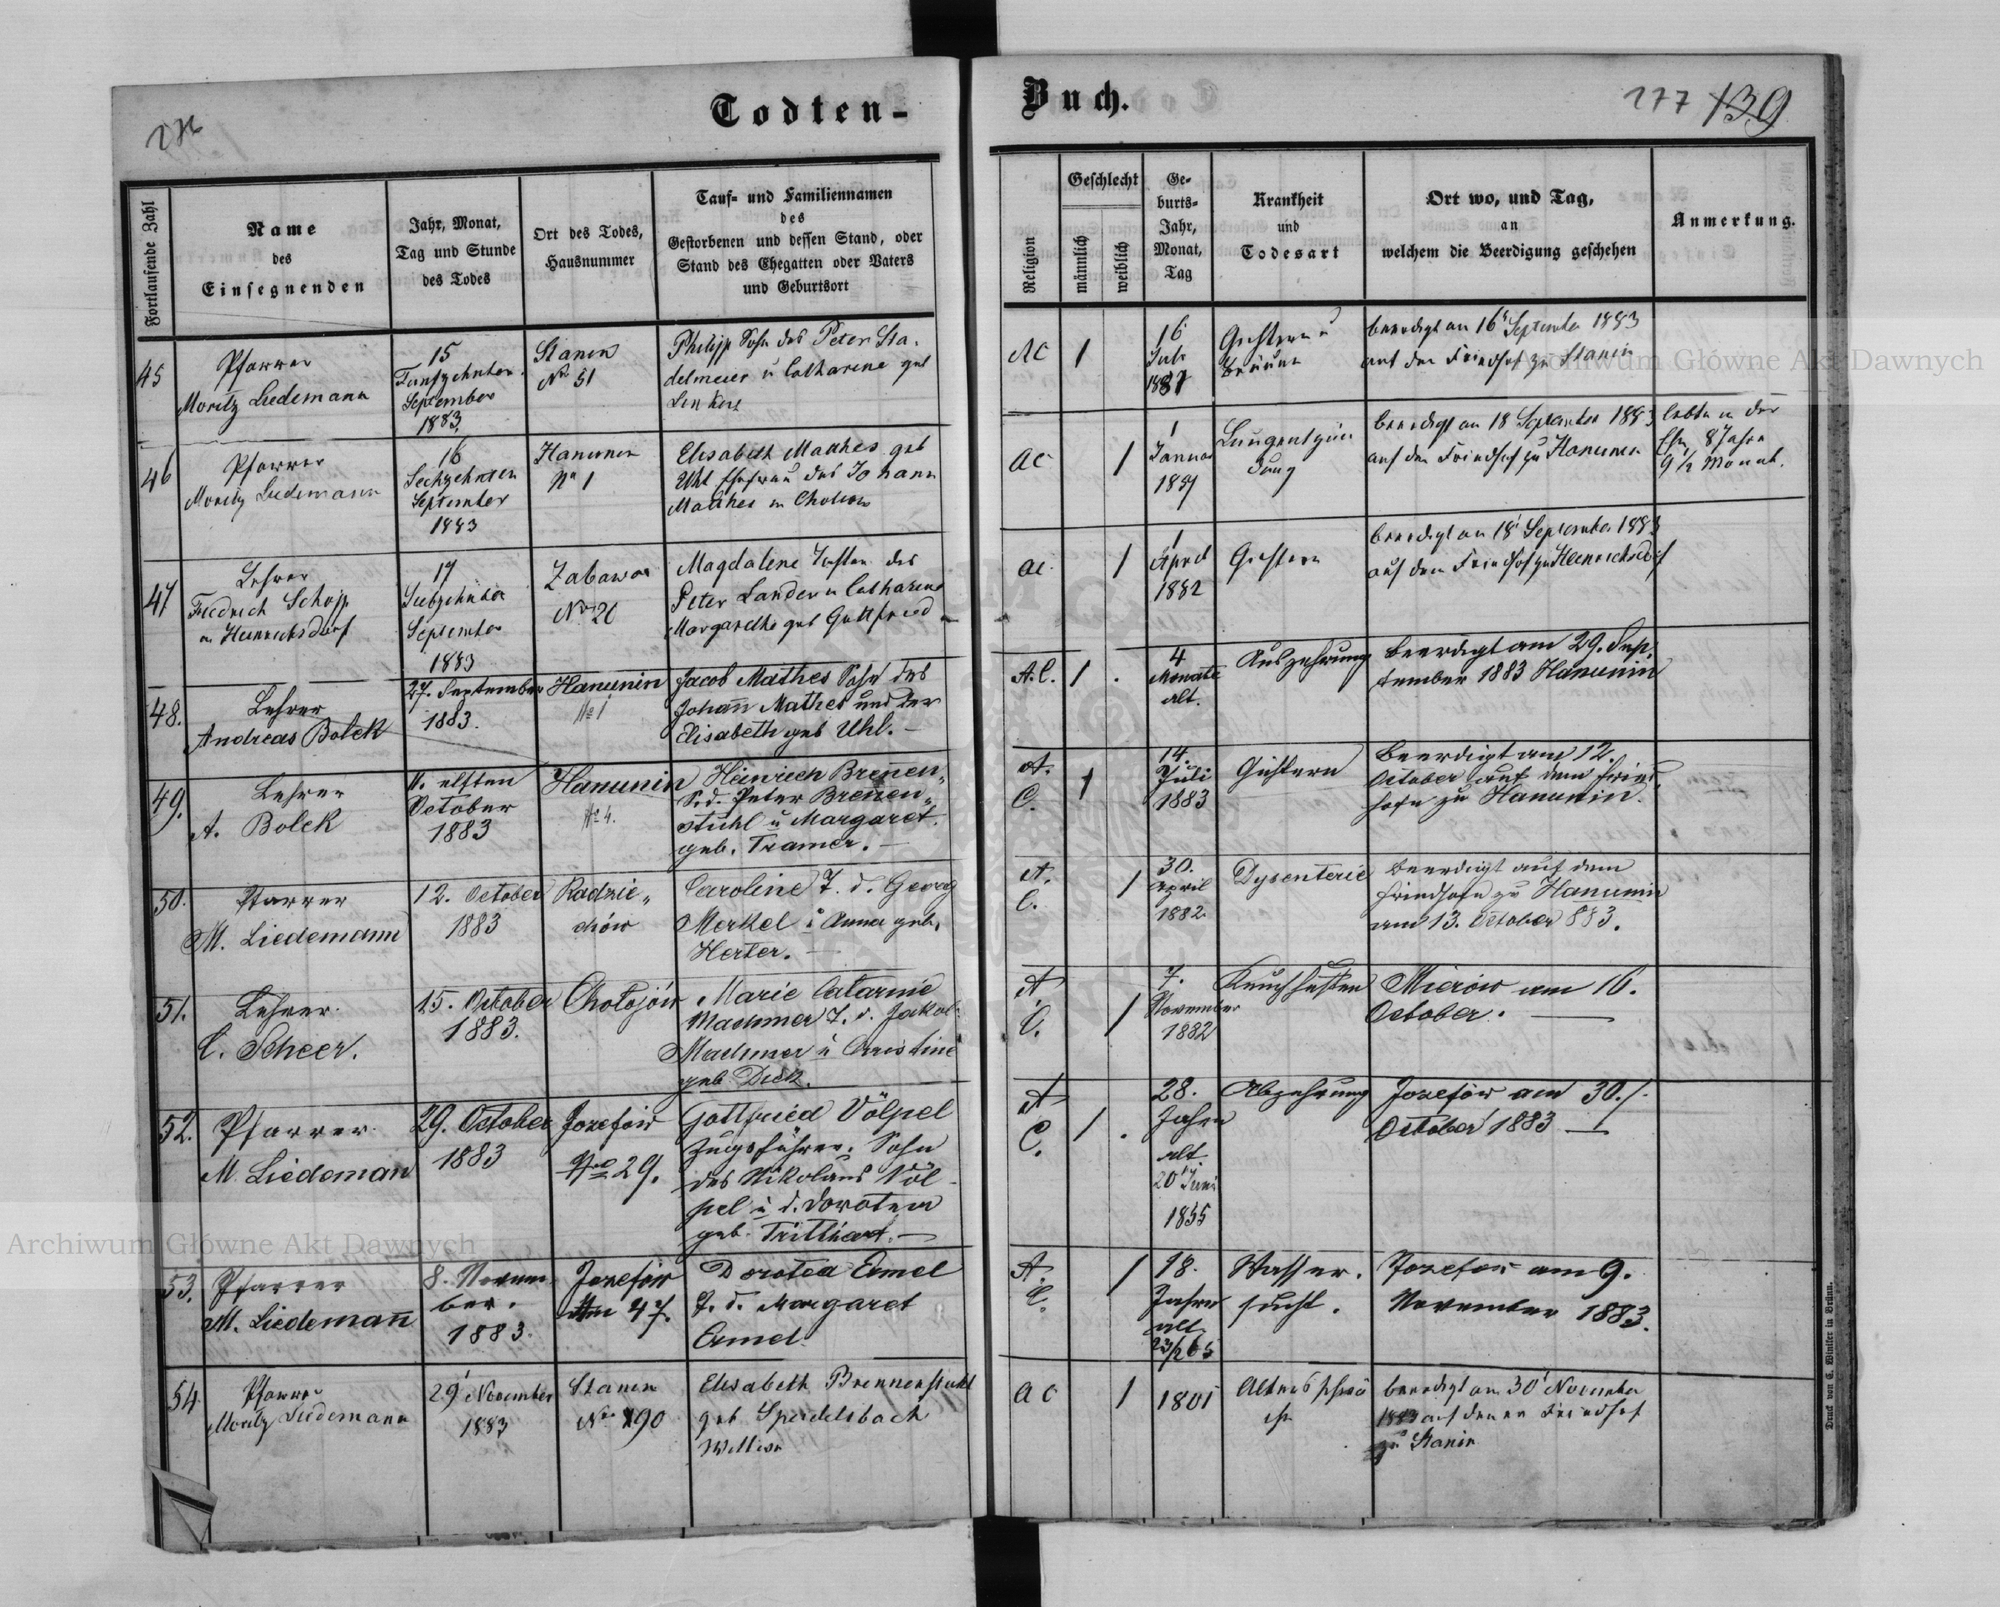 Todten-
276
Fortlaufende Zahl
Name
des
Einsegnenden
Jahr, Monat,
Tag und Stunde
des Todes
Ort des Todes,
Hausnummer
Tauf- und Familiennamen
des
Gestorbenen und dessen Stand, oder
Stand des Ehegatten oder Vaters
und Geburtsort
45
Pfarrer
Moritz Liedemann
15
Fünfzehnter
September
1883
Stanin
No 51
Philipp Sohn des Peter Sta-
delmeier u Catharine geb
46
Pfarrer
Moritz Liedemann
16
Sechzehnten
September
1883
Hanunin
No 1
Elisabeth Mathes geb
Uhl Ehefrau des Johann
Mathes in
47
Lehrer
Friedrich Schopp
in Heinrichsdorf
17
Siebzehnter
September
1883
Zabawa
No 20
Magdalene Tochter des
Peter Lander u Catharine
Margarethe geb Gottfried
48.
Lehrer
Andreas Bolek
27. September
1883.
Hanunin
No 1
Jacob Mathes Sohn des
Johann Mathes und der
Elisabeth geb Uhl. —
49.
Lehrer
A. Bolek
11. elften
October
1883
Hanunin
No 4.
Heinrich Brenen„
S. d. Peter Brenen„
stuhl u Margaret.
geb. Tramer. —
50.
Pfarrer
M. Liedemann
12. October
1883
Radzie„
chów
Caroline T. d. Georg
Merkel u Anna geb.
Herter. —
51.
Lehrer
C. Scheer.
15. October
1883.
Chotojów
Marie Catarine
Machmer T. d. Jakob
Machmer u Christine
geb Dick.
52.
Pfarrer
M. Liedeman
29. October
1883
Jozefów
Nro 29.
Gottfried Völpel
Zugsführer. Sohn
des Nikolaus Völ-
pel u d. Dorotea
geb.
53.
Pfarrer
M. Liedemann
8. Novem
ber.
1883.
Jozefów
47.
Dorotea Emel
T. d. Margaret
Emel
54
Pfarrer
Moritz Liedemann
29 November
1883
Stanin
No 190
Elisabeth Brennenstuhl
geb Speidelsbach
Wittwe
Buch.
277 139
Religion
Geschlecht
männlich
weiblich
Ge-
burts-
Jahr,
Monat,
Tag
Krankheit
und
Todesart
Ort wo, und Tag,
an
welchem die Beerdigung geschehen
Anmerkung.
AC
1
16
Juli
1881
Gichtern u
Bräune
beerdigt am 16 September 1883
auf den Friedhof zu Stanin
AC
1
1
Januar
Lungenentzün
dung
beerdigt am 18 September 1883
auf den Friedhof zu Hanunin
lebte in der
Ehe 8 Jahre
9 1/2 Monat.
AC
1
1
April
1882
Gichtern
beerdigt am 18 September 1883
auf den Friedhof zu Heinrichsdorf
A.C.
1
4
Monate
alt.
Auszehrung
Beerdigt am 29. Sep.
tember 1883 Hanunin
A.
C.
1
14.
Juli
1883
Gichtern
Beerdigt am 12.
October auf dem Fried„
hofe zu Hanunin.
A.
C.
1
30.
April
1882
Dysenterie
Beerdigt auf dem
Friedhofe zu Hanunin
am 13. October 883.
A
C.
1
7.
November
1882
Keuchhusten
Mierów am 16.
October. —
A
C.
1
28.
Jahre
alt
20 Juni
1855
Abzehrung
Jozefów am 30.
October 1883 —
A.
C.
1
18.
Jahre
alt
23/2 65
Wasser.
sucht.
Jozefów am 9.
November 1883.
AC
1
1801
Altersschwä
che
beerdigt am 30 November
1883 auf den Friedhof
zu Stanin
Druck von C. Winiker in Brünn.
Archiwum Główne Akt Dawnych
Archiwum Główne Akt Dawnych